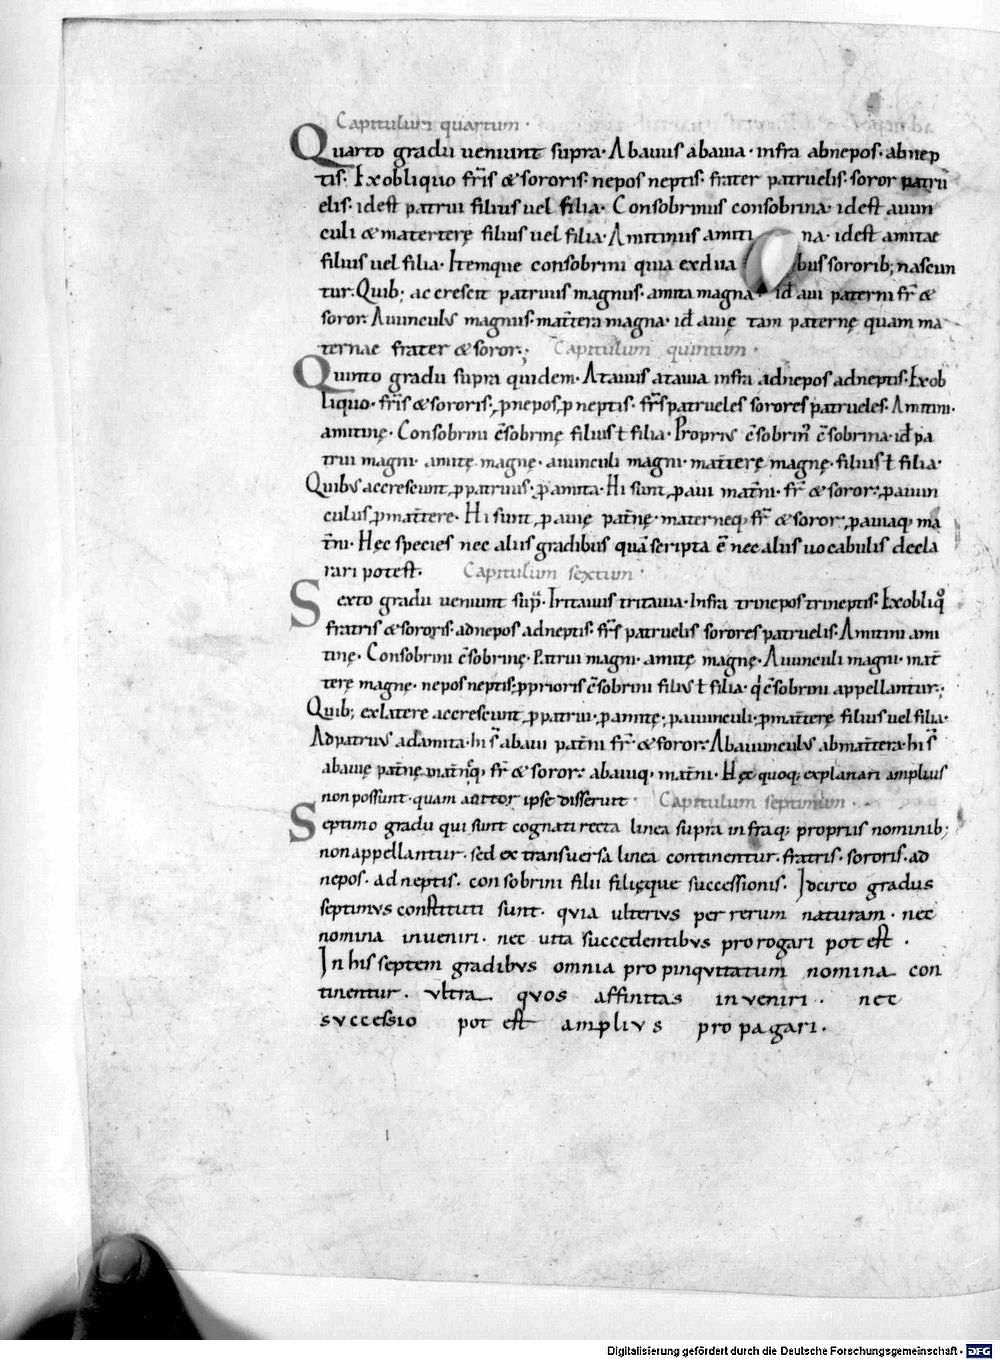 Capitulum quartum ·
Quarto gradu ueniunt supra· Abauus abauia · infra abnepos· abnep
tis· Ex obliquo fr̄is & sororis· nepos neptis· frater patruelis· soror patru
elis· id est patrui filius uel filia· Consobrinus consobrina· id est auun
culi & matertere̜ filius uel filia· Amitinus amiti na· id est amitae
filius uel filia· Itemque consobrini quia ex dua bus sororib; nascun
tur· Quib; accrescit patruus magnus· amita magna· id̄ aui paterni fr̄ &
soror· Auunculus magnus· mat̄tera magna· id̄ auie̜ tam paterne̜ quam ma
ternae frater & soror·; Capitulum quintum ·
Quinto gradu supra quidem· Atauus atauia infra adnepos adneptis· Ex ob
liquo· fr̄is & sororis· ꝓnepos, ꝓneptis· fr̄s patrueles sorores patrueles· Amitini·
amitine̜· Consobrini c̄sobrine̜ filius ł filia· Proprius c̄sobrin᷒ c̄sobrina· id̄ pa
trui magni· amite̜ magne̜· auunculi magni· mat̄tere̜ magne̜· filius ł filia·
Quibus accrescunt, ꝓpatruus· ꝓamita· Hi sunt, ꝓaui mat̄ni· fr̄ & soror·, ꝓauun
culus, ꝓmat̄tere· Hi sunt, ꝓauie̜ pat̄ne̜· materneq; fr̄ & soror·, ꝓauiaq; ma
t̄ni· He̜c species nec aliis gradibus quā scripta ē nec aliis uocabulis decla
rari potest· Capitulum sextum ·
Sexto gradu ueniunt sup̄· Tritauus tritauia· Infra trinepos trineptis· Ex obliq̊
fratris & sororis· adnepos adneptis· fr̄s patruelis sorores patruelis· Amitini ami
tine̜· Consobrini c̄sobrine̜· Patrui magni· amite̜ magne̜· Auunculi magni· mat̄
tere̜ magne̜· nepos neptis·, ꝓprioris c̄sobrini filius ł filia· q́ c̄sobrini appellantur·;
Quib; ex latere accrescunt, ꝓpatrui·, ꝓamite̜·, ꝓauunculi·, ꝓmat̄tere̜ filius uel filia·
Adpatruus adamita· hi s̄ abaui pat̄ni fr̄· & soror· Abauunculus abmat̄tera· hi s̄
abauie̜ pat̄ne̜ mat̄nq; fr̄ & soror· abauiq; mat̄ni· He̜c quoq; explanari amplius
non possunt· quam auctor ipse disseruit· Capitulum septimum ·
Septimo gradu qui sunt cognati recta linea supra infraq; propriis nominib;
non appellantur· sed ex transuersa linea continentur· fratris· sororis· ad
nepos· adneptis· consobrini filii filie̜que successionis· Idcirco gradus
septimus constituti sunt· quia ulterius per rerum naturam· nec
nomina inueniri· nec uita succedentibus prorogari potest ·
In his septem gradibus omnia propinquitatum nomina con
tinentur· ultra quos affinitas inueniri· nec
successio potest amplius propagari·
Digitalisierung gefördert durch die Deutsche Forschungsgemeinschaft - DFG